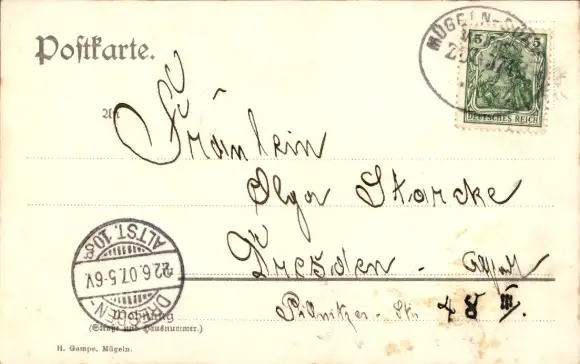 Postkarte.
MÜGELN-
5 5
DEUTSCHES REICH
An
Fräulein
Olga Starcke
Dresden -
Pillnitzer - Str. 48 III.
DRESDEN-ALTST. 10
22.6.07.5-6V.
Wohnung
(Straße und Hausnummer.)
H. Gampe, Mügeln.